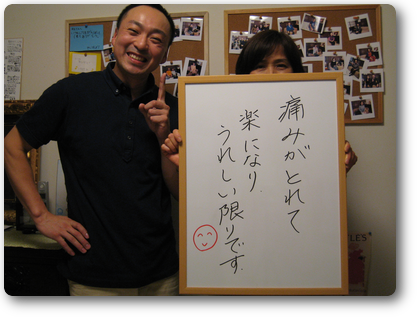 痛みがとれて
楽になり
うれしい限りです。